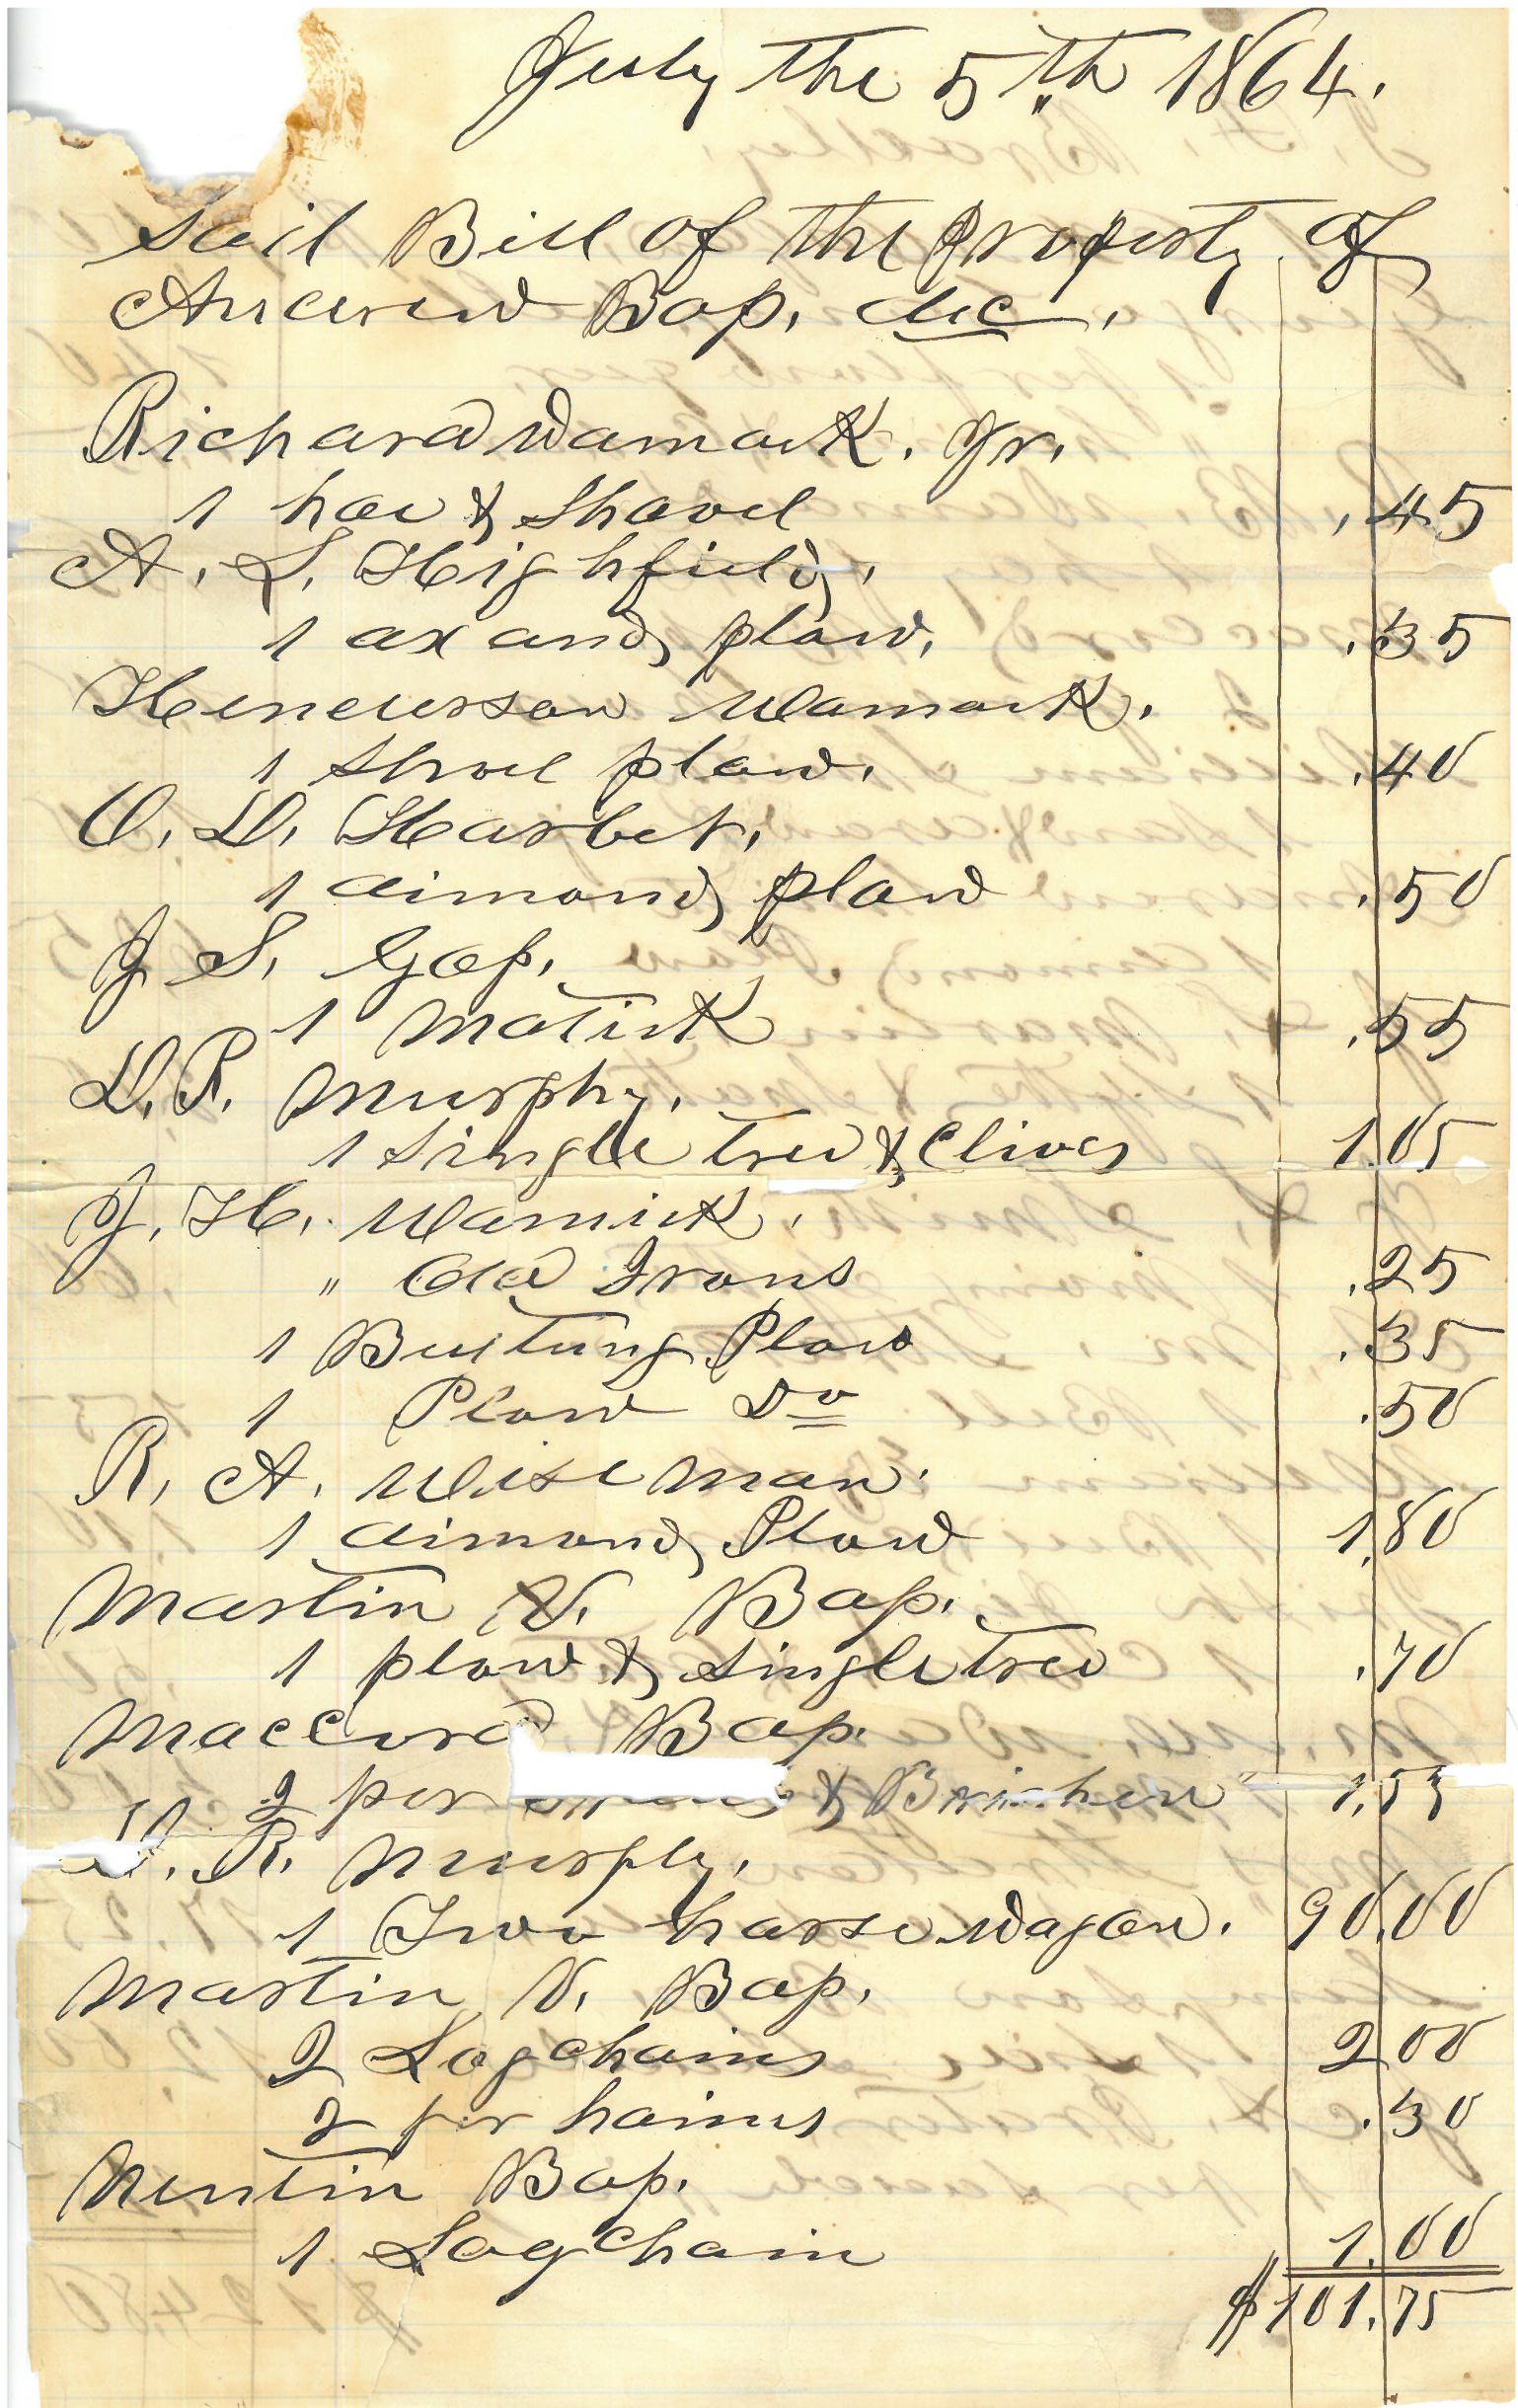 July the 5th 1864.
Sail Bill of the Property of
Andrew Bass. dec.
Richard Wamack. Jr.
1 hoe & Shovel .45
A. L. Highfield.
1 ax and plow. .35
Henderson Wamack.
1 Shovel plow. .40
O. D. Harbet.
1 dimond plow .50
J S. Goss.
1 Matick .55
D. R. Murphy.
1 Single tree & Clives 1.05
J. H. Wamick.
" Old Irons .25
1 Bultung Plow .35
1 Plow Do .50
R. A. Wise man.
1 dimond Plow 1.80
Martin V. Bass.
1 plow & Single tree .70
Maccord Bass.
2 per & 1.55
D. R. Murphy.
1 Two horse wagon. 90.00
Martin V. Bass.
2 Log Chains 2 00
2 per haims .30
Newtin Bass.
1 Log Chain 1.00
$101.75